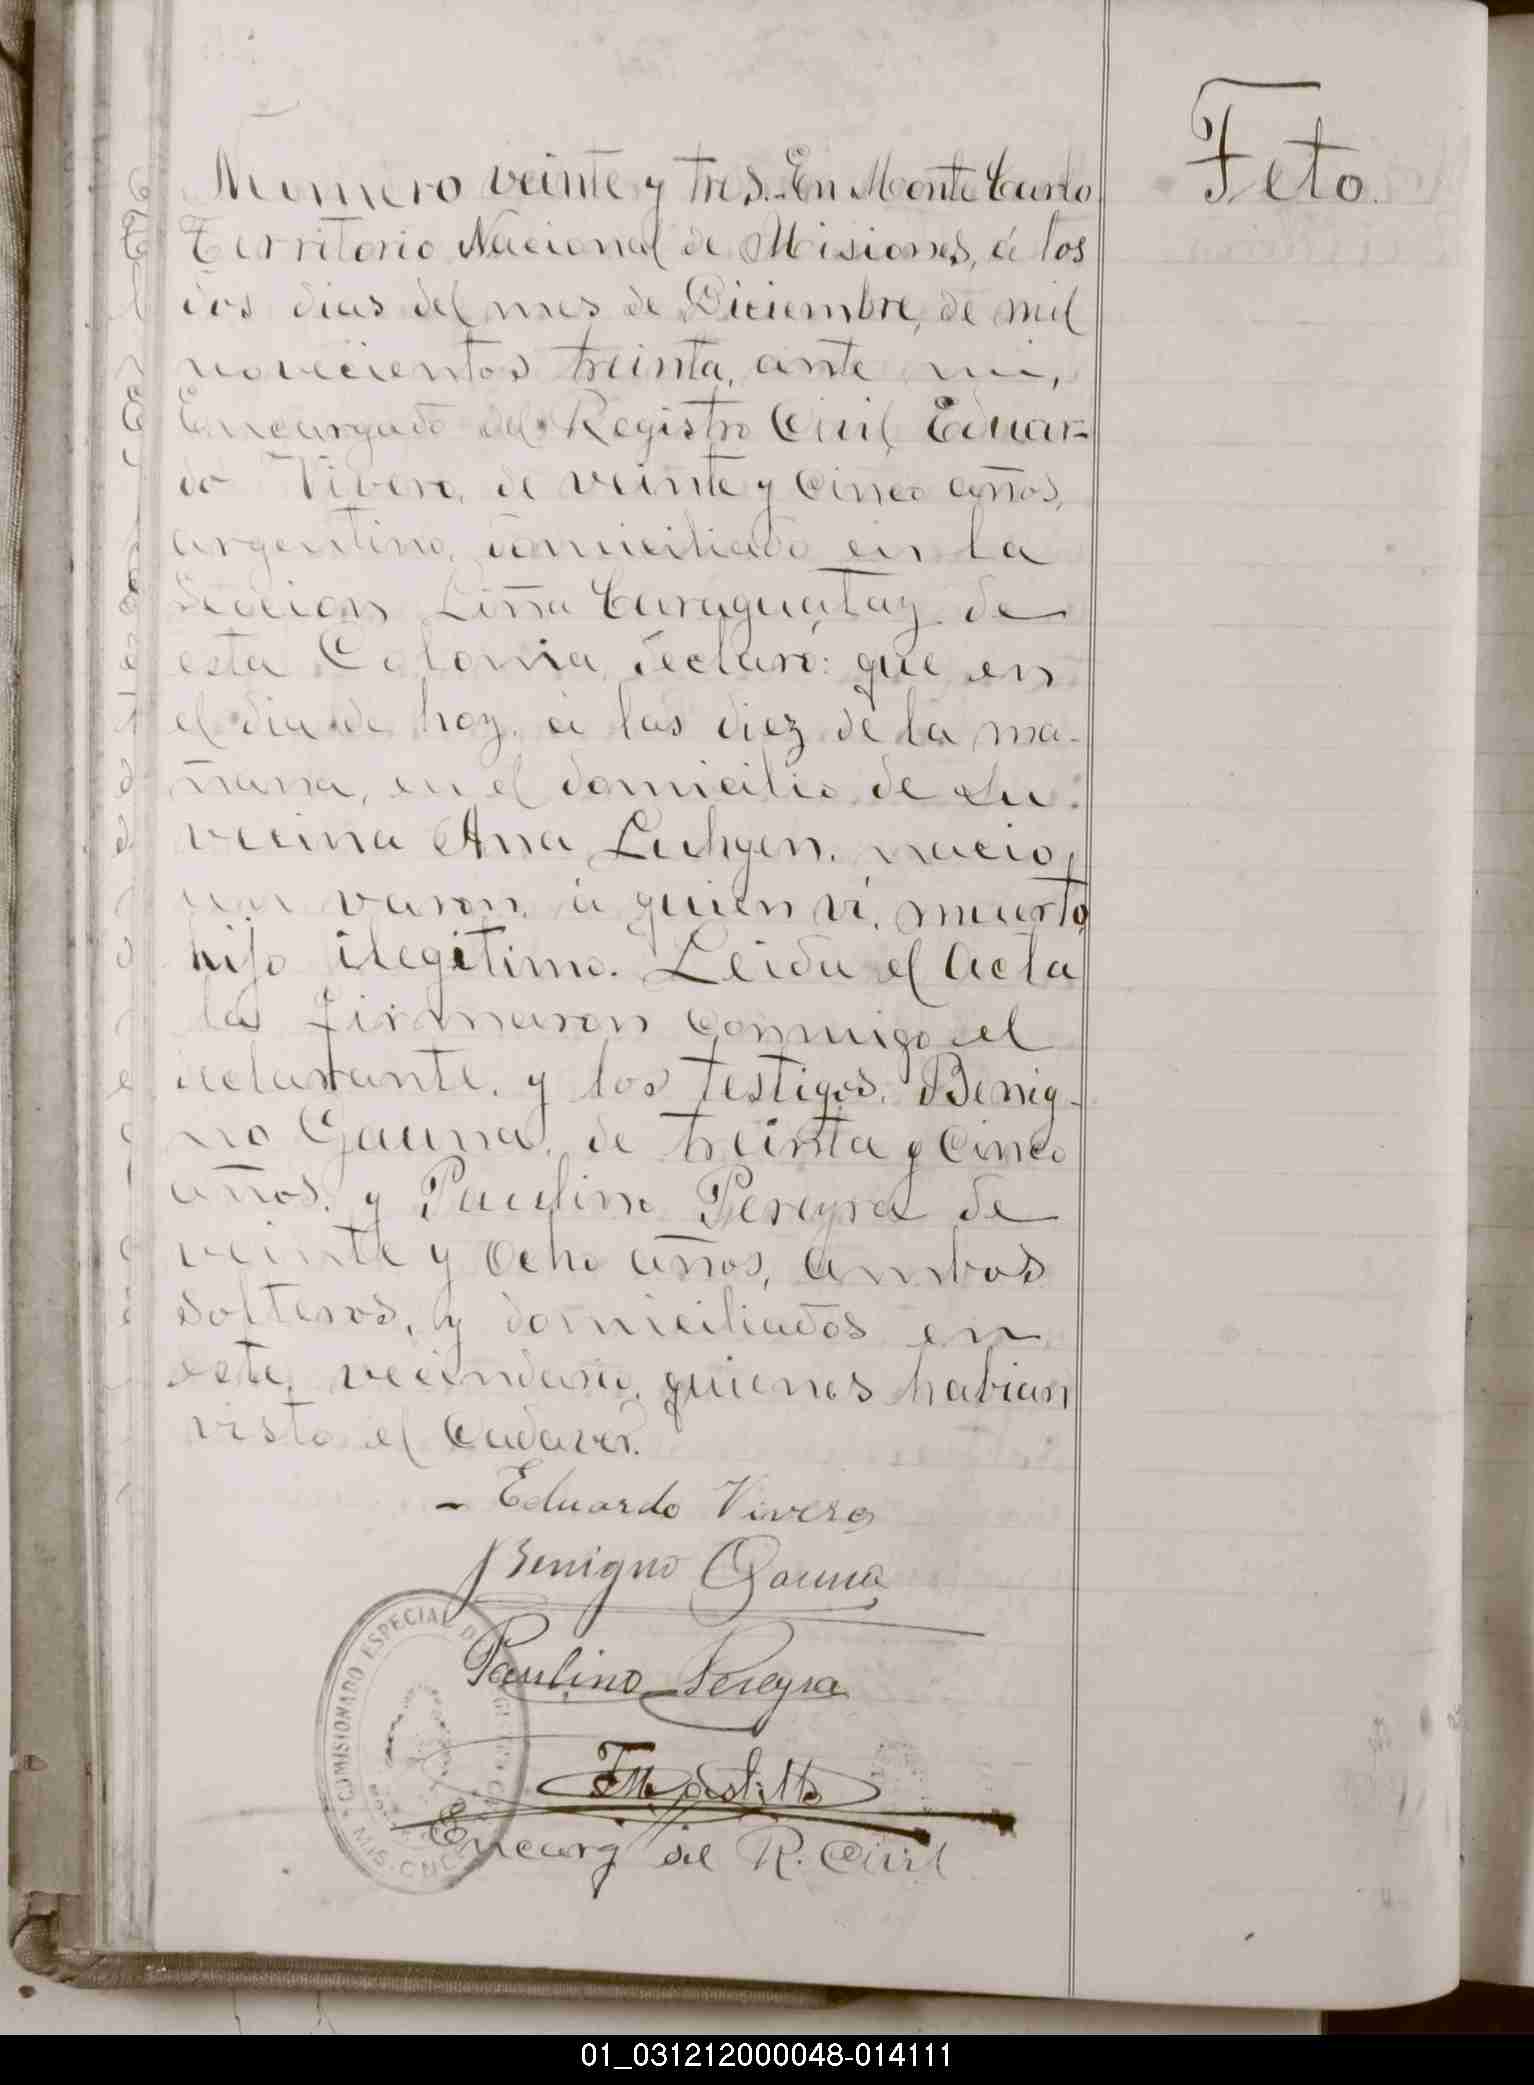 Feto.
Numero veinte y tres.- En Monte Carlo
Territorio Nacional de Misiones, á los
dos dias del mes de Diciembre, de mil
novecientos treinta, ante mi,
Encargado del Registro Civil Eduar-
do Vivero, de veinte y cinco años,
argentino, domiciliado en la
Seccion Liña Caraguatay de
esta Colonia, declaró: que en
el dia de hoy, á las diez de la ma-
ñana, en el domicilio de su
vecina Ana Luhgen, nacio,
un varon, á quien vi, muerto,
hijo ilegitimo. Leida el acta
la firmaron conmigo el
declarante, y los testigos, Benig-
no Gauna, de treinta y cinco
años, y Paulino Pereyra de
veinte y ocho años, ambos
solteros, y domiciliados en
este, vecindario, quienes habian
visto el cadaver.
- Eduardo Vivero
Benigno Gauna
Paulino Pereyra
Encarg del R. Civil
COMISIONADO ESPECIAL D
MIS. CNC
01_031212000048-014111